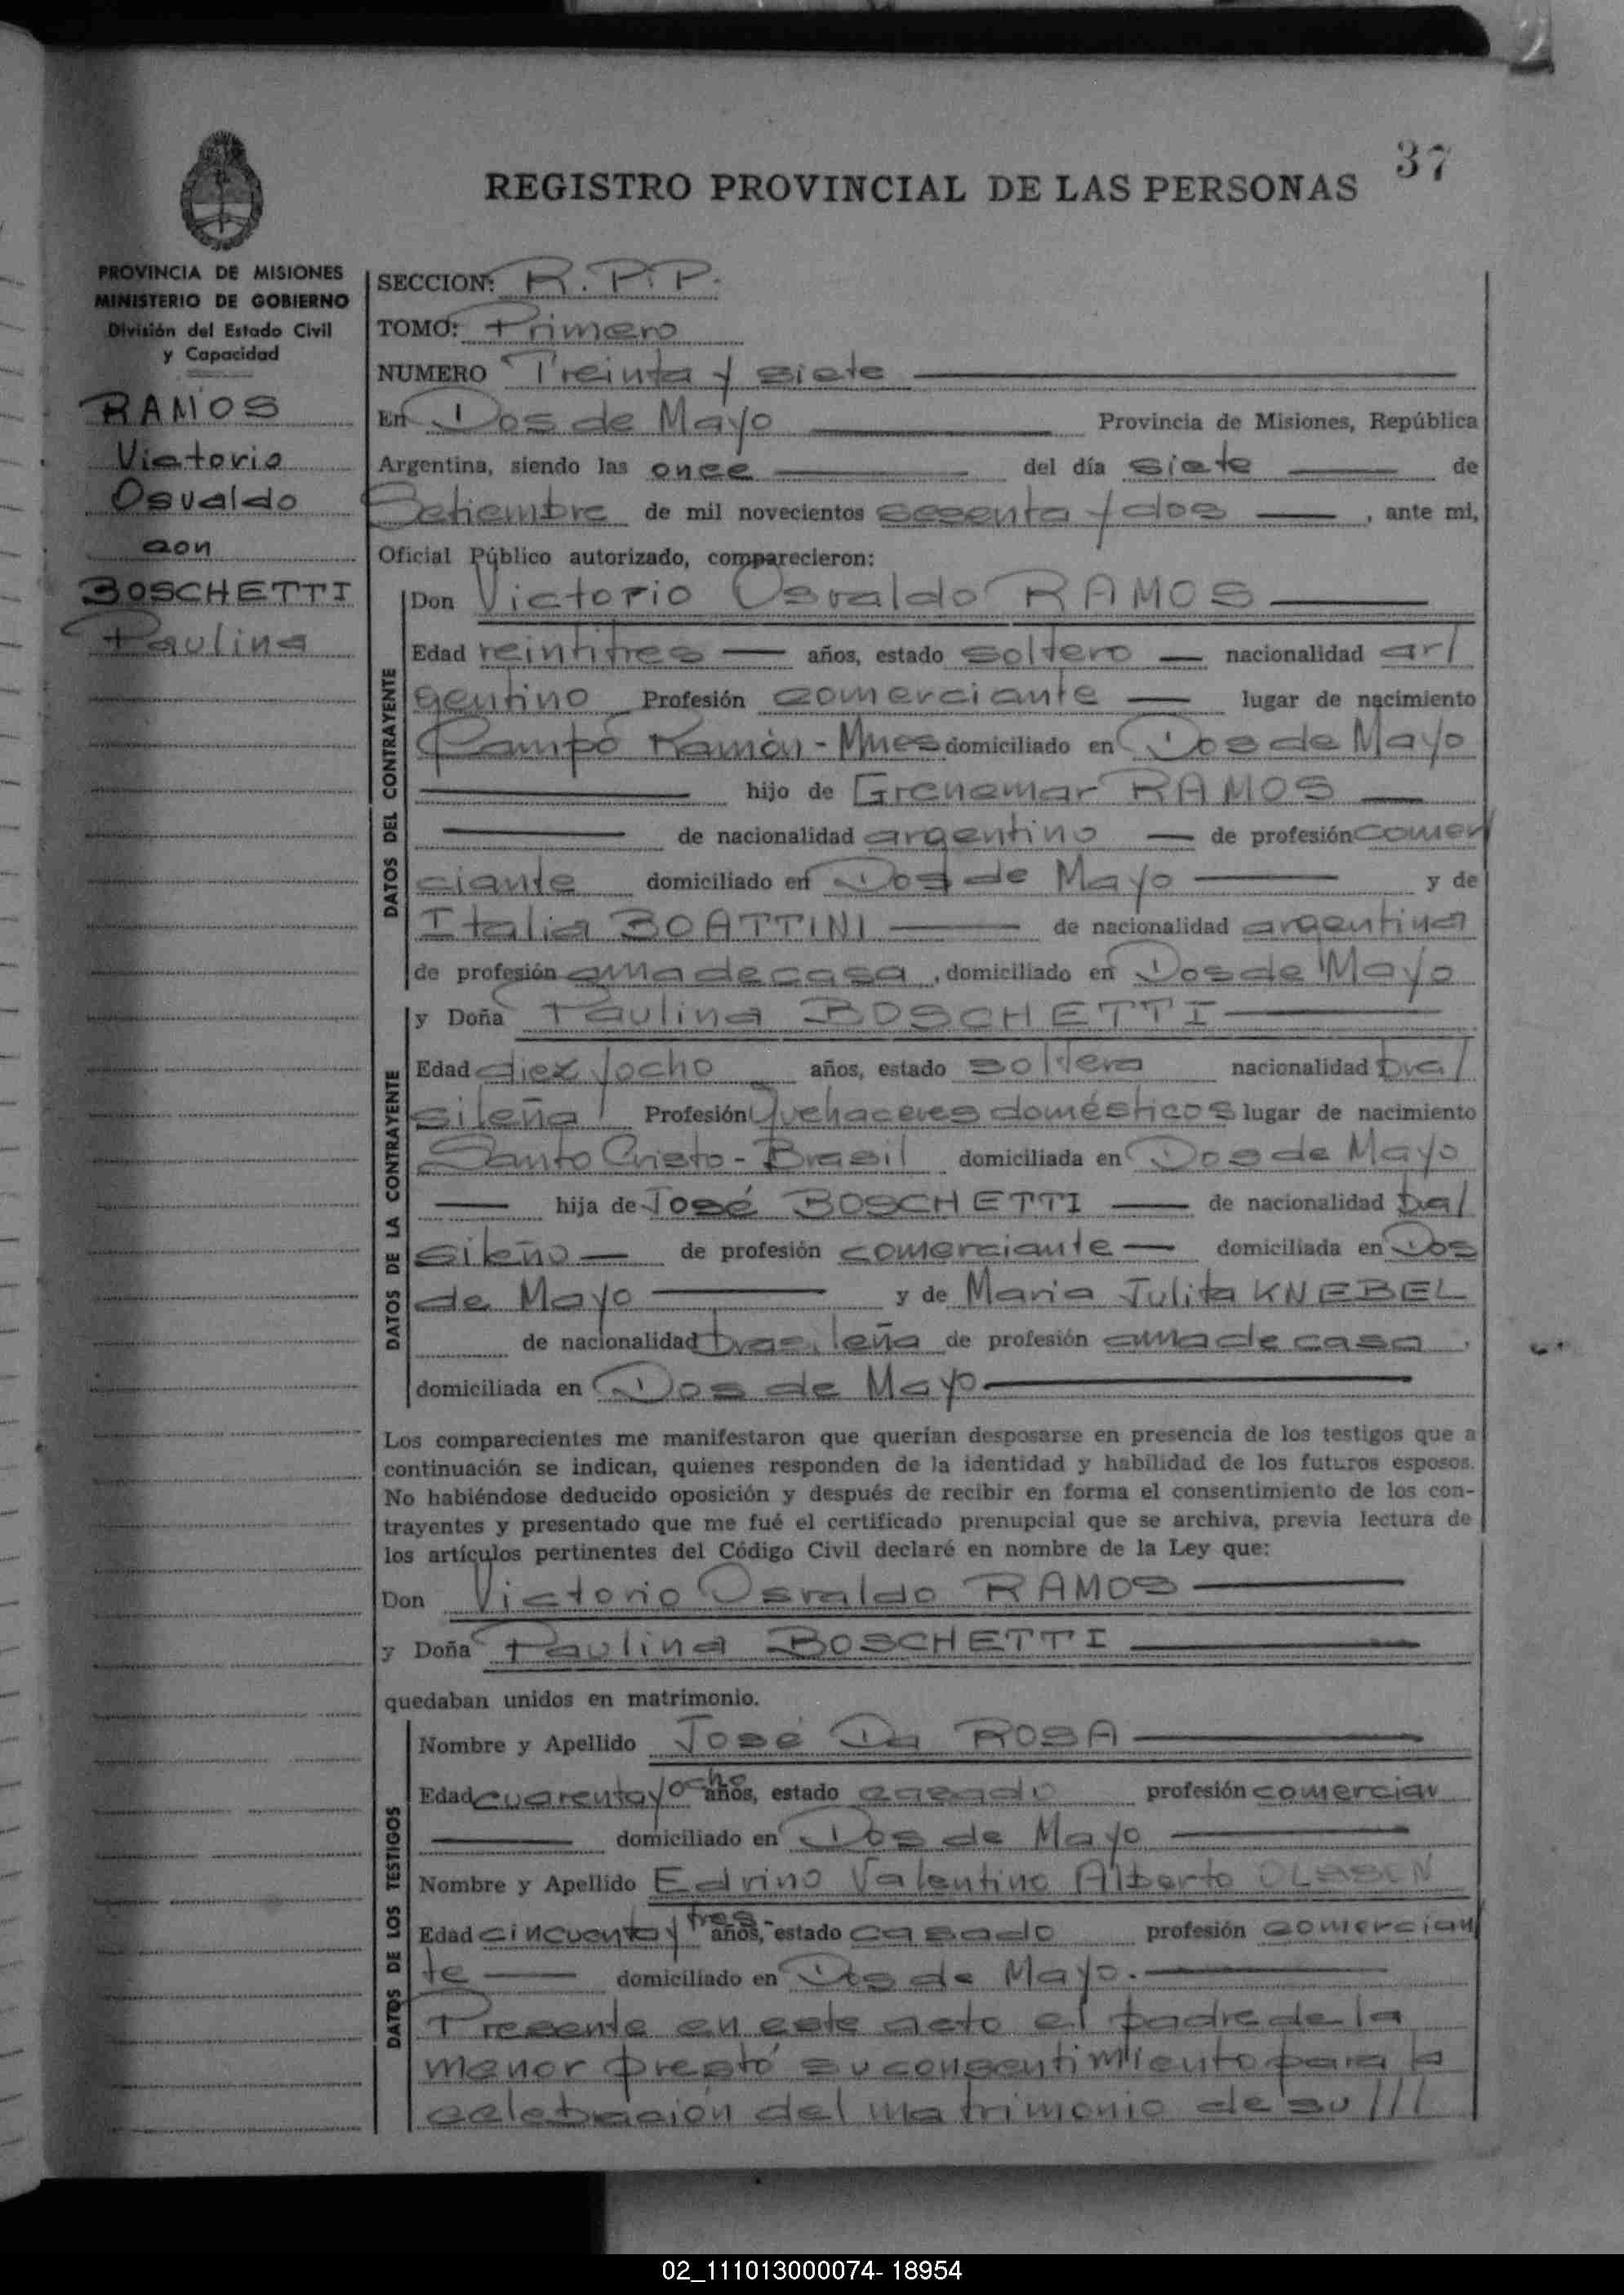 37
REGISTRO PROVINCIAL DE LAS PERSONAS
PROVINCIA DE MISIONES
MINISTERIO DE GOBIERNO
División del Estado Civil
y Capacidad
RAMOS
Victorio
Osvaldo
con
BOSCHETTI
Paulina
SECCION: R. P. P.
TOMO: Primero
NUMERO Treinta y siete
En Dos de Mayo Provincia de Misiones, República
Argentina, siendo las once del día siete de
Setiembre de mil novecientos sesenta y dos, ante mi,
Oficial Público autorizado, comparecieron:
DATOS DEL CONTRAYENTE
Don Victorio Osvaldo RAMOS
Edad veintitres años, estado soltero nacionalidad ar/
gentino Profesión comerciante lugar de nacimiento
Campo Ramón - Mnes domiciliado en Dos de Mayo
hijo de RAMOS
de nacionalidad argentino de profesión comer
ciante domiciliado en Dos de Mayo y de
Italia BOATTINI de nacionalidad argentina
de profesión ama de casa, domiciliado en Dos de Mayo
DATOS DE LA CONTRAYENTE
y Doña Paulina BOSCHETTI
Edad diez y ocho años, estado soltera nacionalidad bra/
sileña Profesión Quehaceres domésticos lugar de nacimiento
Santo Cristo - Brasil domiciliada en Dos de Mayo
hija de José BOSCHETTI de nacionalidad
sileño de profesión comerciante domiciliada en Dos
de Mayo y de Maria Julita KNEBEL
de nacionalidad brasileña de profesión ama de casa,
domiciliada en Dos de Mayo
Los comparecientes me manifestaron que querían desposarse en presencia de los testigos que a
continuación se indican, quienes responden de la identidad y habilidad de los futuros esposos.
No habiéndose deducido oposición y después de recibir en forma el consentimiento de los con-
trayentes y presentado que me fué el certificado prenupcial que se archiva, previa lectura de
los artículos pertinentes del Código Civil declaré en nombre de la Ley que:
Don Victorio Osvaldo RAMOS
y Doña Paulina BOSCHETTI
quedaban unidos en matrimonio.
DATOS DE LOS TESTIGOS
Nombre y Apellido José Da ROSA
Edad cuarenta y ocho años, estado casado profesión comercian
domiciliado en Dos de Mayo
Nombre y Apellido Edvino Valentino Alberto
Edad cincuenta y tres años, estado casado profesión comercian
te domiciliado en Dos de Mayo.
Presente en este acto el padre de la
menor prestó su consentimiento para la
celebración del matrimonio de su ///
02_111013000074- 18954